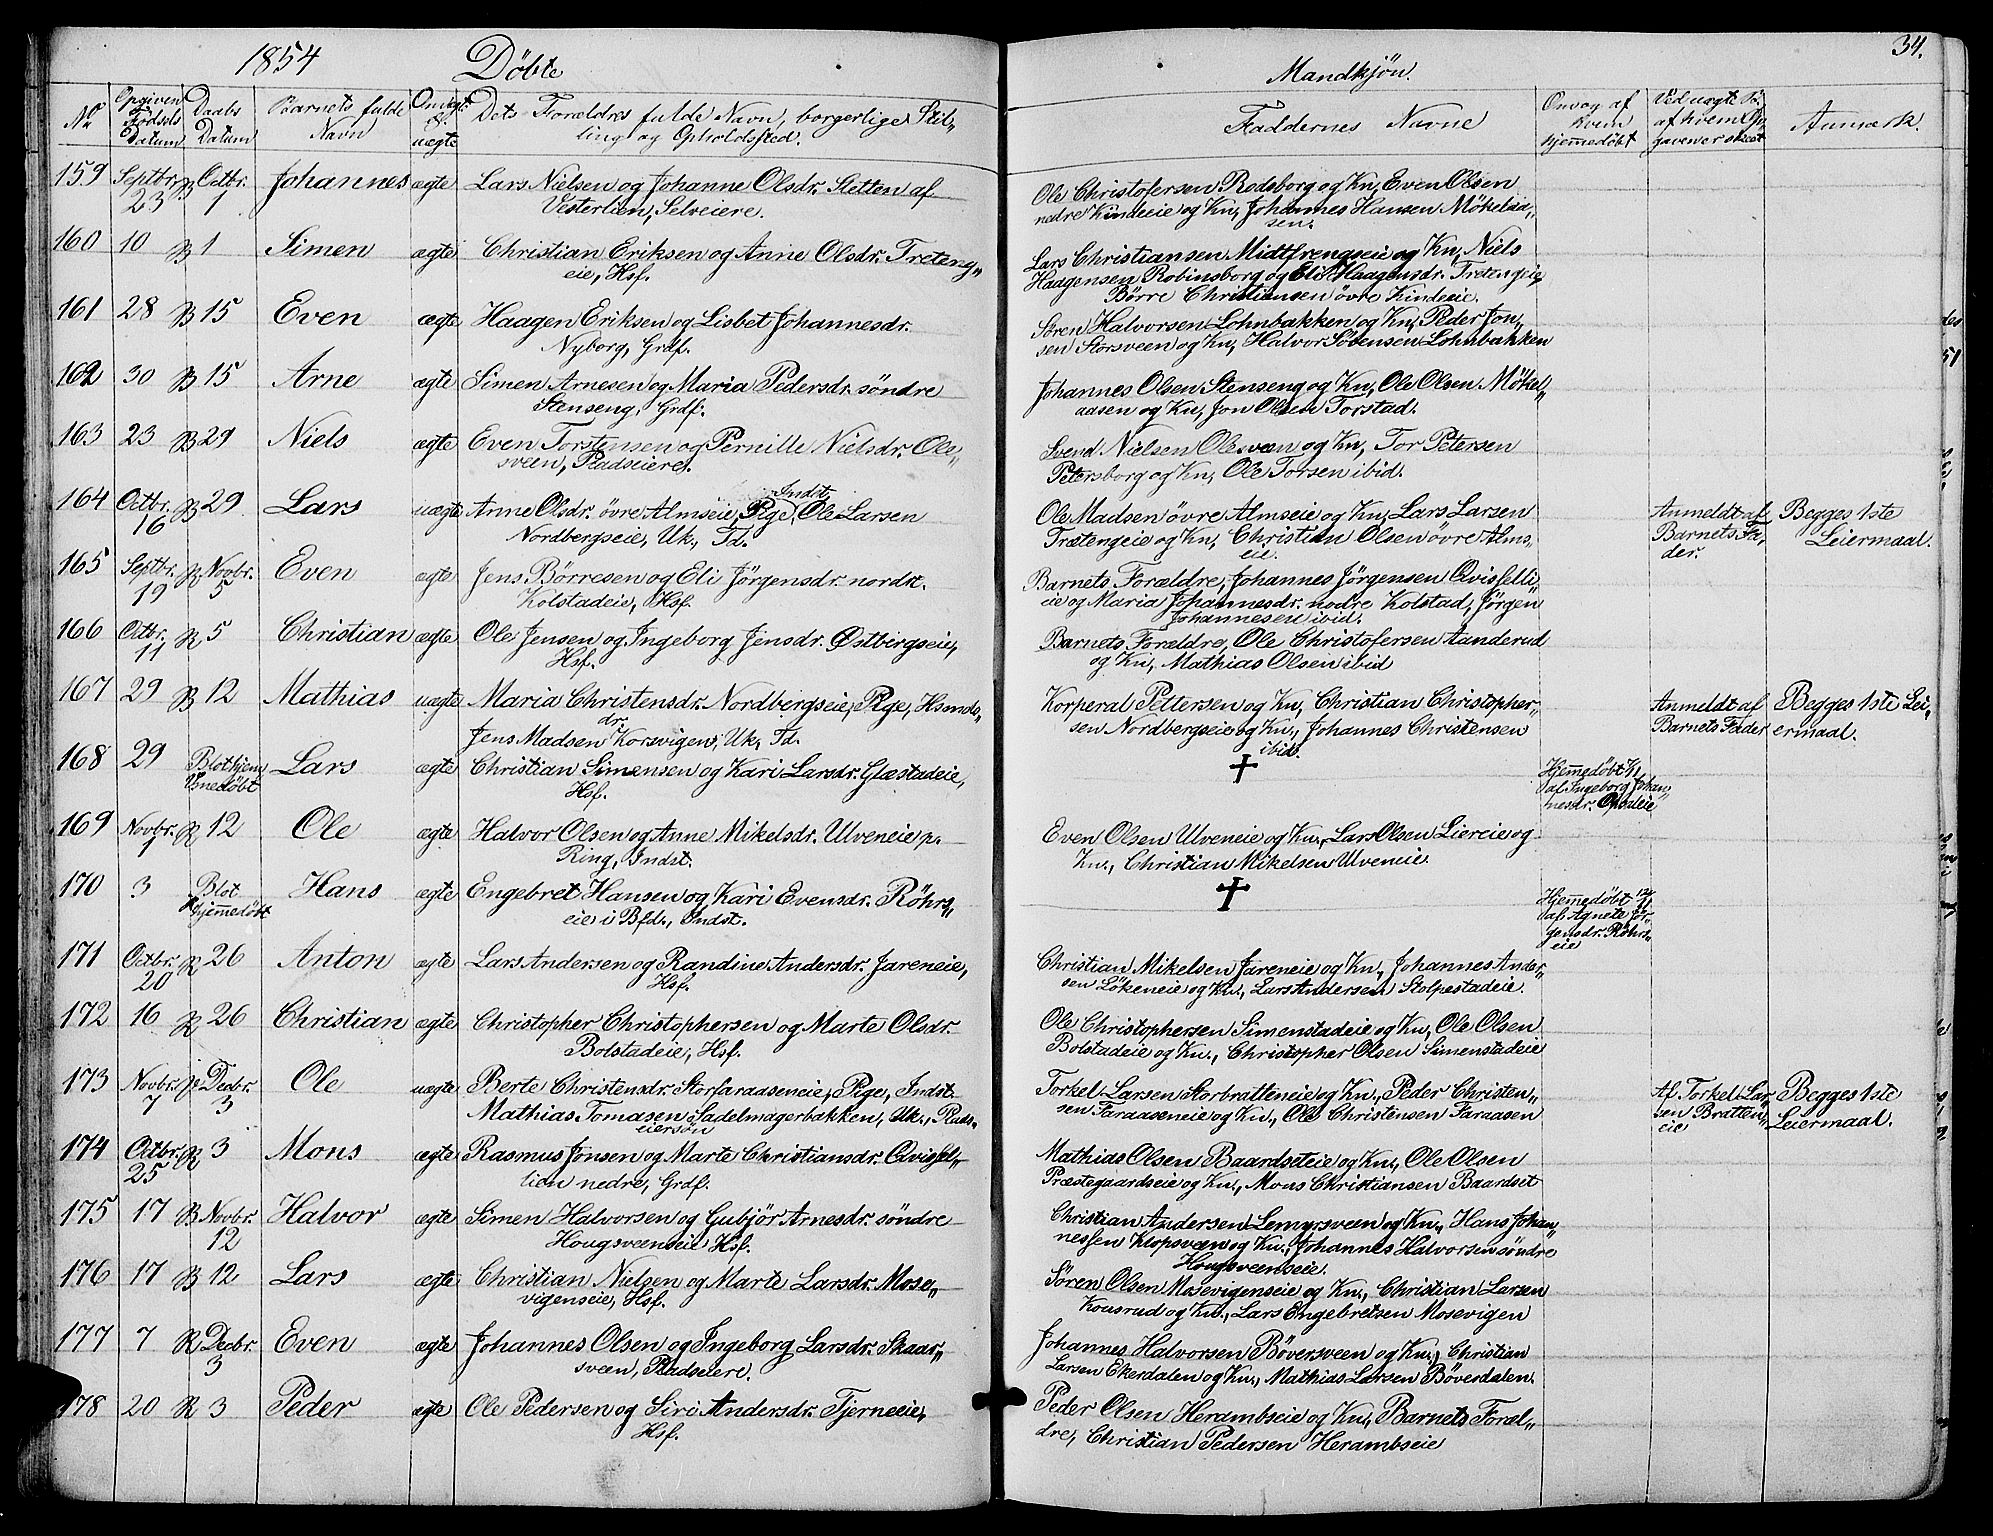 1854 Döbte
Mandkjön. 34.
No Opgiven Födsels Datum Daabs Datum Barnets fulde Navn Om ægt. el. uægte Dets Forældres fulde Navn, borgerlige Stil„
ling og Opholdssted.
Faddernes Navne Om og af hvem hjemmedöbt Anmærk.
159 Septbr. 23 B Octbr. 1 Johannes ægte Lars Nielsen og Johanne Olsdr. Sletten af
Vesterlien, Selveiere.
Ole Christofersen Rodsborg og Kn, Even Olsen
nedre Kindeeie og Kn, Johannes Hansen Mökelaa„
sen.
160 10 B 1 Simen ægte Christian Eriksen og Anne Olsdr. Treteng„
eie, Hsf.
Lars Christiansen Midtfrengseie og Kn, Niels
Haagensen Robinsborg og Eli Haagensdr. Tretengeie,
Börre Christiansen övre Kindeeie.
161 28 B 15 Even ægte Haagen Eriksen og Lisbet Johannesdr.
Nyborg, Grdf.
Sören Halvorsen Lohnbakken og Kn, Peder Jon„
sen Storsveen og Kn, Halvor Sörensen Lohnbakken
162 30 B 15 Arne ægte Simen Arnesen og Maria Pedersdr. söndre
Stenseng, Grdf.
Johannes Olsen Stenseng og Kn, Ole Olsen Mökel„
aasen og Kn, Jon Olsen Torstad.
163 23 B 29 Niels ægte Even Torstensen og Pernille Nielsdr. Ole„
sveen, Pladseiere.
Svend Nielsen Olesveen og Kn, Tor Petersen
Petersborg og Kn, Ole Torsen ibid.
164 Octbr. 16 B 29 Lars uægte Anne Olsdr. övre Almseie, Pige, Indst. Ole Larsen
Nordbergseie, Uk, Td.
Ole Madsen övre Almseie og Kn, Lars Larsen
Trætengeie og Kn, Christian Olsen övre Alms„
eie.
Anmeldt af
Barnets Fa„
der.
Begges 1ste
Leiermaal.
165 Septbr. 19 R Novbr. 5 Even ægte Jens Börresen og Eli Jörgensdr. nordst.
Kolstadeie, Hsf.
Barnets Forældre, Johannes Jörgensen Qvisselli„
eie og Maria Johannesdr. nedre Kolstad, Jörgen
Johannesen ibid.
166 Octbr. 11 R 5 Christian ægte Ole Jensen og Ingeborg Jensdr. Östbergseie,
Hsf.
Barnets Forældre, Ole Christofersen Aanderud
og Kn, Mathias Olsen ibid
167 29 B 12 Mathias uægte Maria Christensdr. Nordbergseie, Pige, Hsmds„
dr.
Jens Madsen Korsvigen, Uk, Td.
Korperal Pettersen og Kn, Christian Christopher„
sen Nordbergseie og Kn., Johannes Christensen
ibid.
Anmeldt af
Barnets Fader
Begges 1ste Lei„
ermaal.
168 29 Blot hjem„
medöbt Lars ægte Christian Simensen og Kari Larsdr. Glæstadeie,
Hsf.
†
Hjemmedöbt
af Ingeborg Johan„
nesdr.
169 Novbr. 1 R 12 Ole ægte Halvor Olsen og Anne Mikelsdr. Ulveneie p.
Ring, Indst.
Even Olsen Ulveneie og Kn., Lars Olsen Liereie og
Kn., Christian Mikelsen Ulveneie.
170 3 Blot
hjemmedöbt Hans ægte Engebret Hansen og Kari Evensdr. Röhrs„
eie i Bfd., Indst.
†
Hjemmedöbt 12/11
af Agnete Jör„
gensdr. Röhrs„
eie
171 Octbr. 20 R 26 Anton ægte Lars Andersen og Randine Andersdr. Jareneie,
Hsf.
Christian Mikelsen Jareneie og Kn., Johannes Ander„
sen Lökeneie og Kn., Lars Andersen Stolpestadeie.
172 16 R 26 Christian ægte Christopher Christophersen og Marte Olsdr.
Bolstadeie, Hsf.
Ole Christophersen Simenstadeie og Kn, Ole Olsen
Bolstadeie og Kn., Christopher Olsen Simenstadeie
173 Novbr. 7 Decbr. 3 Ole uægte Berte Christensdr. Storfaraaseneie, Pige, Indst.
Mathias Tomasen Sadelmagerbakken, Uk., Plads„
eiersön
Torkel Larsen Storbratteneie og Kn, Peder Christen„
sen Faraaseneie og Kn., Ole Christinsen Faraasen
Af Torkel Lar„
sen Bratten„
eie
Begges 1ste
Leiermaal.
174 Octbr. 25 R 3 Mons ægte Rasmus Jonsen og Marte Christiansdr. Qvissel„
lien nedre, Grdf.
Mathias Olsen Baardseteie og Kn., Ole Olsen
Præstegaardseie og Kn., Mons Christiansen Baardset
175 17 B Novbr. 12 Halvor ægte Simen Halvorsen og Gubjör Arnesdr. söndre
Hougsveenseie Hsf.
Christian Andersen Lemyrsveen og Kn., Hans Johan„
nessen Klopsveen og Kn., Johannes Halvorsen söndre
Hougsveenseie.
176 17 B 12 Lars ægte Christian Nielsen og Marte Larsdr. Mose„
vigenseie, Hsf.
Sören Olsen Mosevigenseie og Kn., Christian Larsen
Kousrud og Kn., Lars Engebretsen Mosevigen
177 7 R Decbr. 3 Even ægte Johannes Olsen og Ingeborg Larsdr. Skaar„
sveen, Pladseiere.
Johannes Halvorsen Böversveen og Kn., Christian
Larsen Ekerdalen og Kn., Mathias Larsen Böverdalen.
178 20 R 3 Peder ægte Ole Pedersen og Siri Andersdr. Tjerneeie,
Hsf.
Peder Olsen Herambseie og Kn, Barnets Foræl„
dre, Christian Pedersen Herambseie